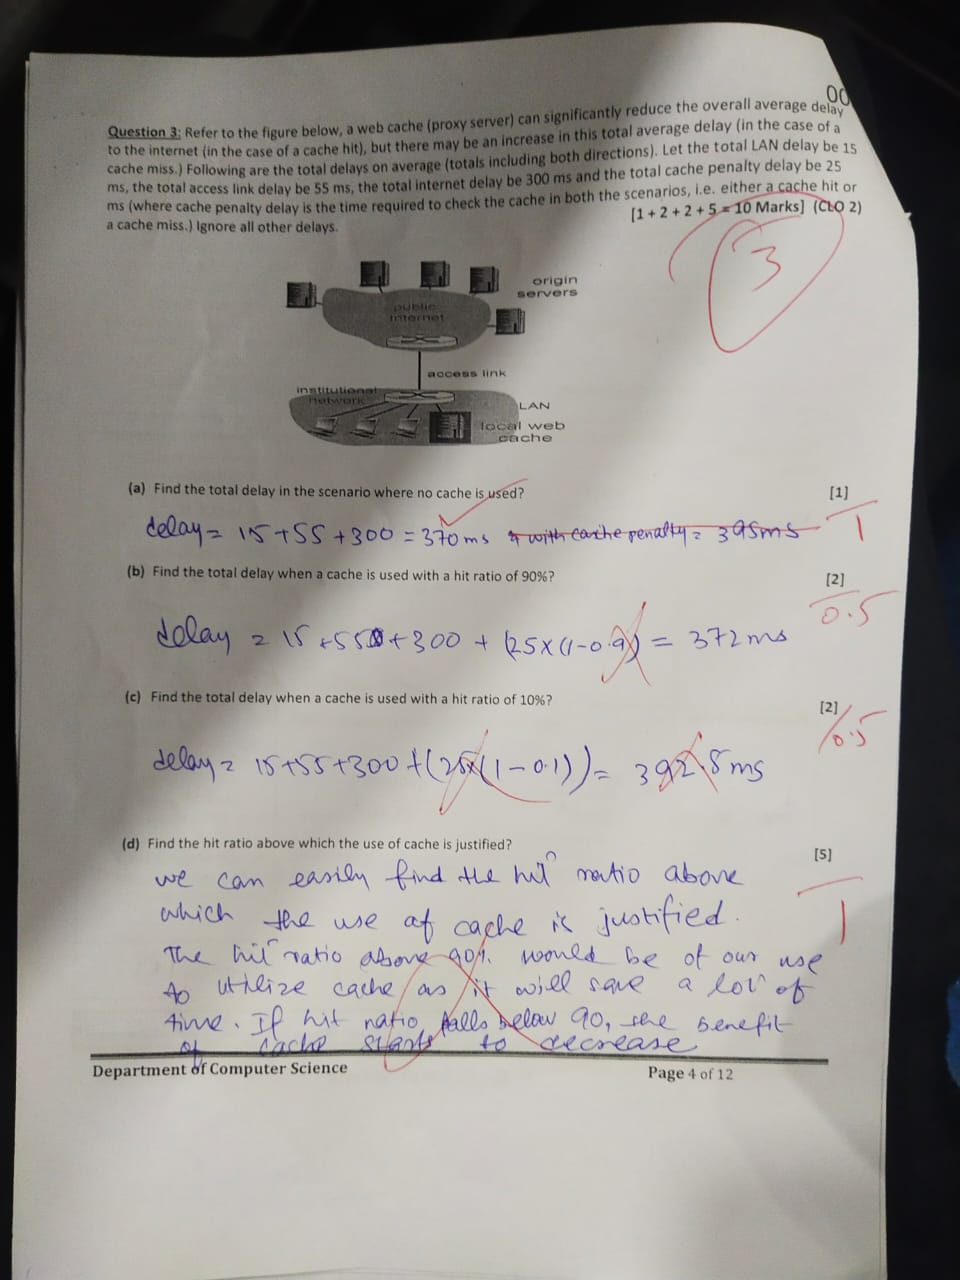 00
Question 3: Refer to the figure below, a web cache (proxy server) can significantly reduce the overall average delay
to the internet (in the case of a cache hit), but there may be an increase in this total average delay (in the case of a
cache miss.) Following are the total delays on average (totals including both directions). Let the total LAN delay be 15
ms, the total access link delay be 55 ms, the total internet delay be 300 ms and the total cache penalty delay be 25
ms (where cache penalty delay is the time required to check the cache in both the scenarios, i.e. either a cache hit or
a cache miss.) Ignore all other delays. [1 + 2 + 2 + 5 = 10 Marks] (CLO 2)
3
origin
servers
public
internet
access link
institutional
network
LAN
local web
cache
(a) Find the total delay in the scenario where no cache is used? [1]
delay = 15 +55 +300 = 370 ms & with cache penalty = 395ms 1
(b) Find the total delay when a cache is used with a hit ratio of 90%? [2]
0.5
delay = 15 +55 +300 + (25x(1-0.9)) = 372 ms
(c) Find the total delay when a cache is used with a hit ratio of 10%? [2]
0.5
delay = 15+55+300+(25x(1-0.1)) = 392.5 ms
(d) Find the hit ratio above which the use of cache is justified? [5]
we can easily find the hit ratio above
which the use of cache is justified. 1
The hit ratio above 90% would be of our use
to utilize cache as it will save a lot of
time. If hit ratio falls below 90, the benefit
of cache starts to decrease
Department of Computer Science Page 4 of 12